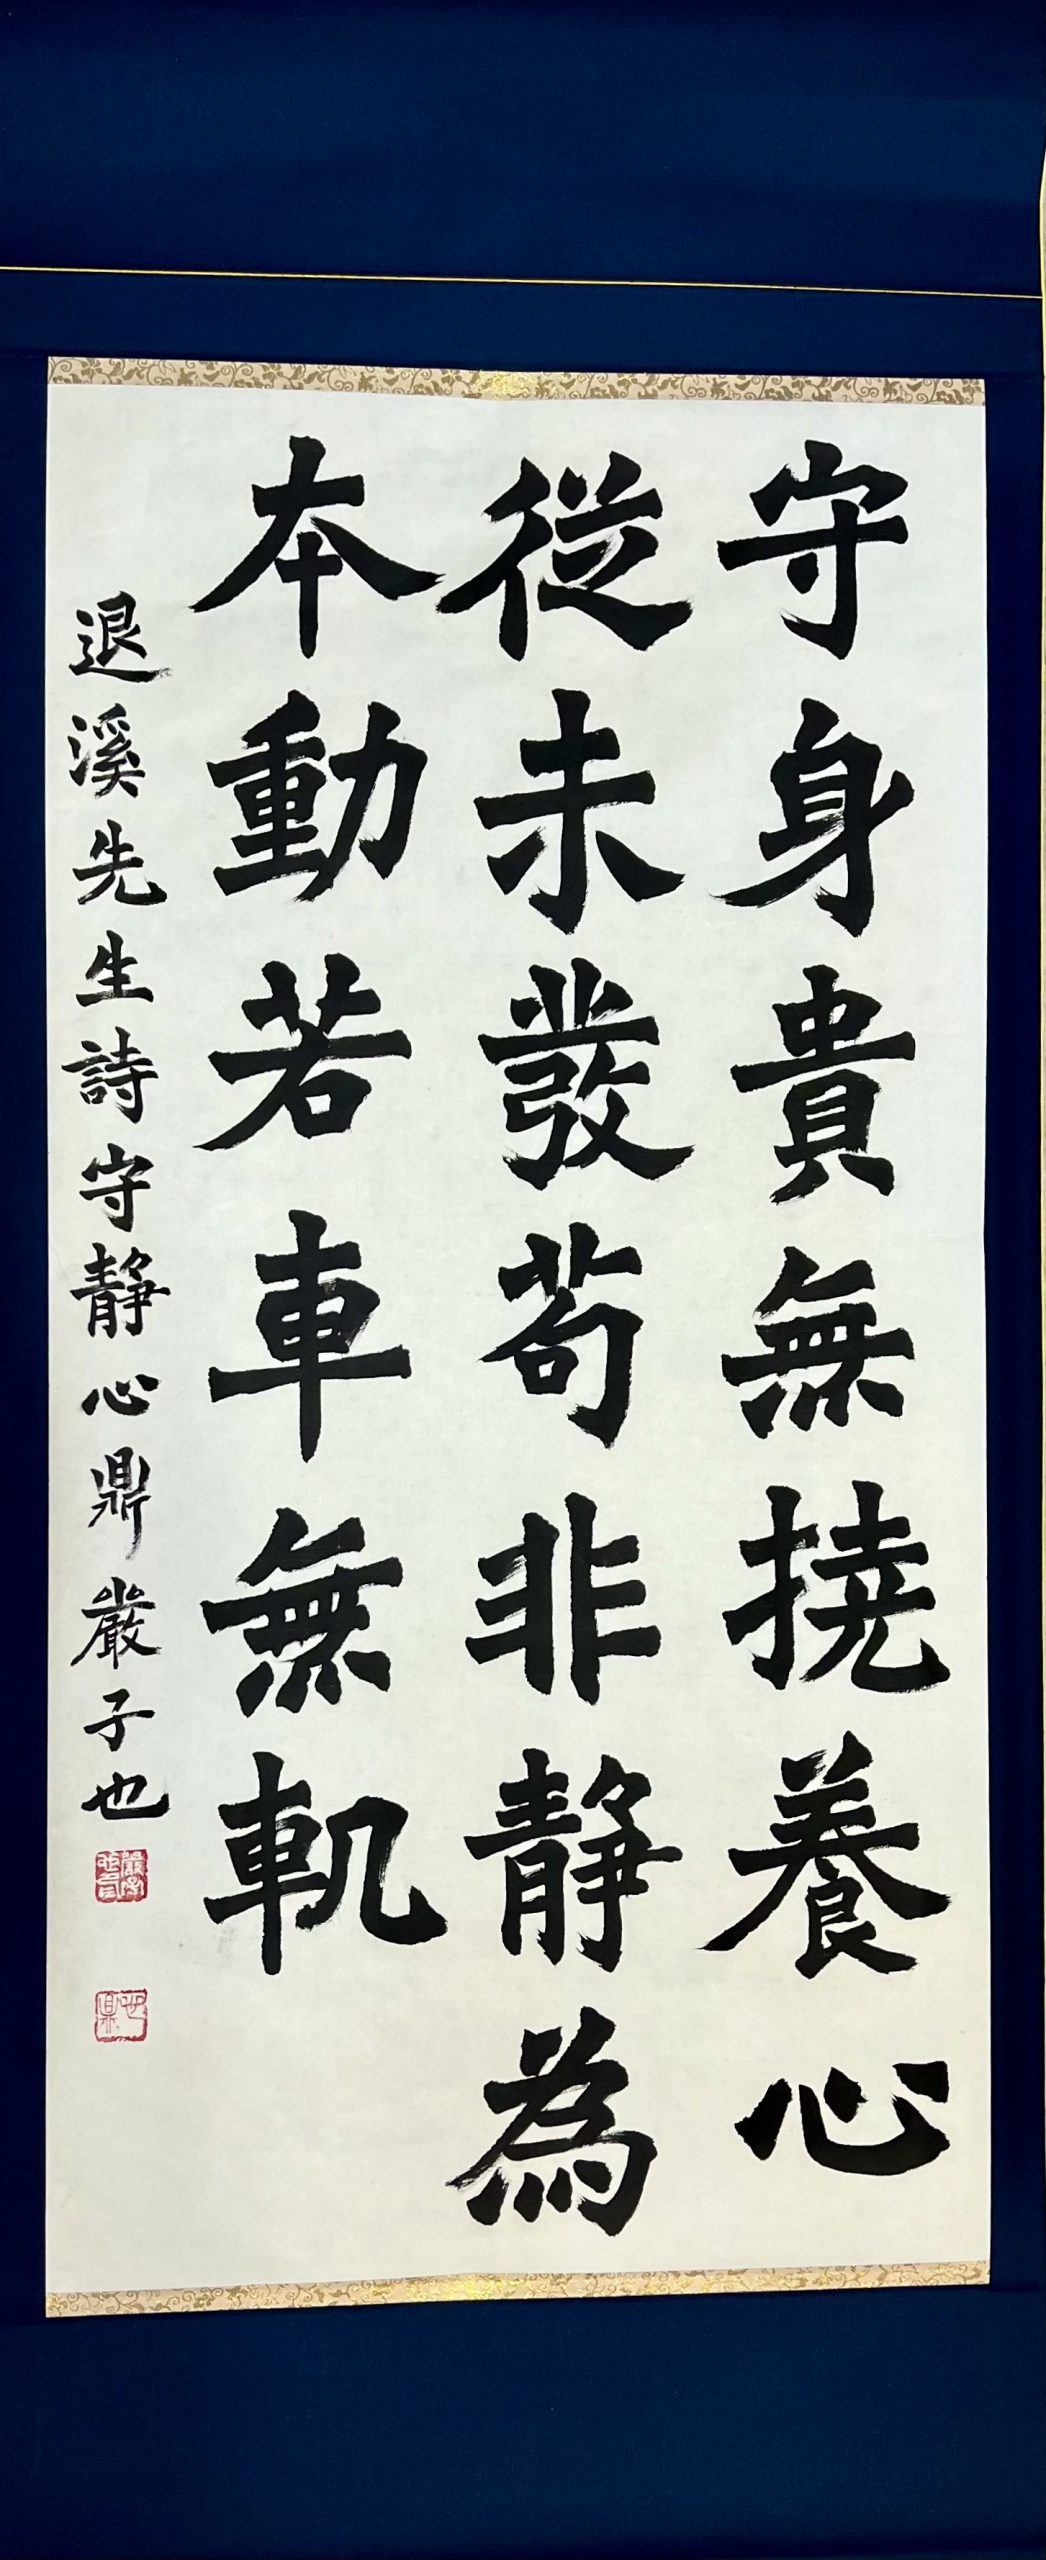 守身貴無撓養心
從未發苟非靜為
本動若車無軏
退溪先生詩守靜心鼎嚴子也